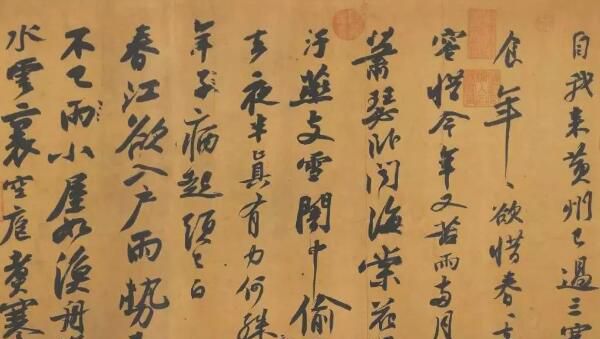 自我来黄州已過三寒
食年〻欲惜春〻去
容惜今年又苦雨兩月
蕭瑟臥聞海棠花
汙燕支雪闇中偷
去夜半真有力何殊
年子病起頭已白
春江欲入戶雨勢
不已雨小屋如漁舟
水雲裏空庖煮寒